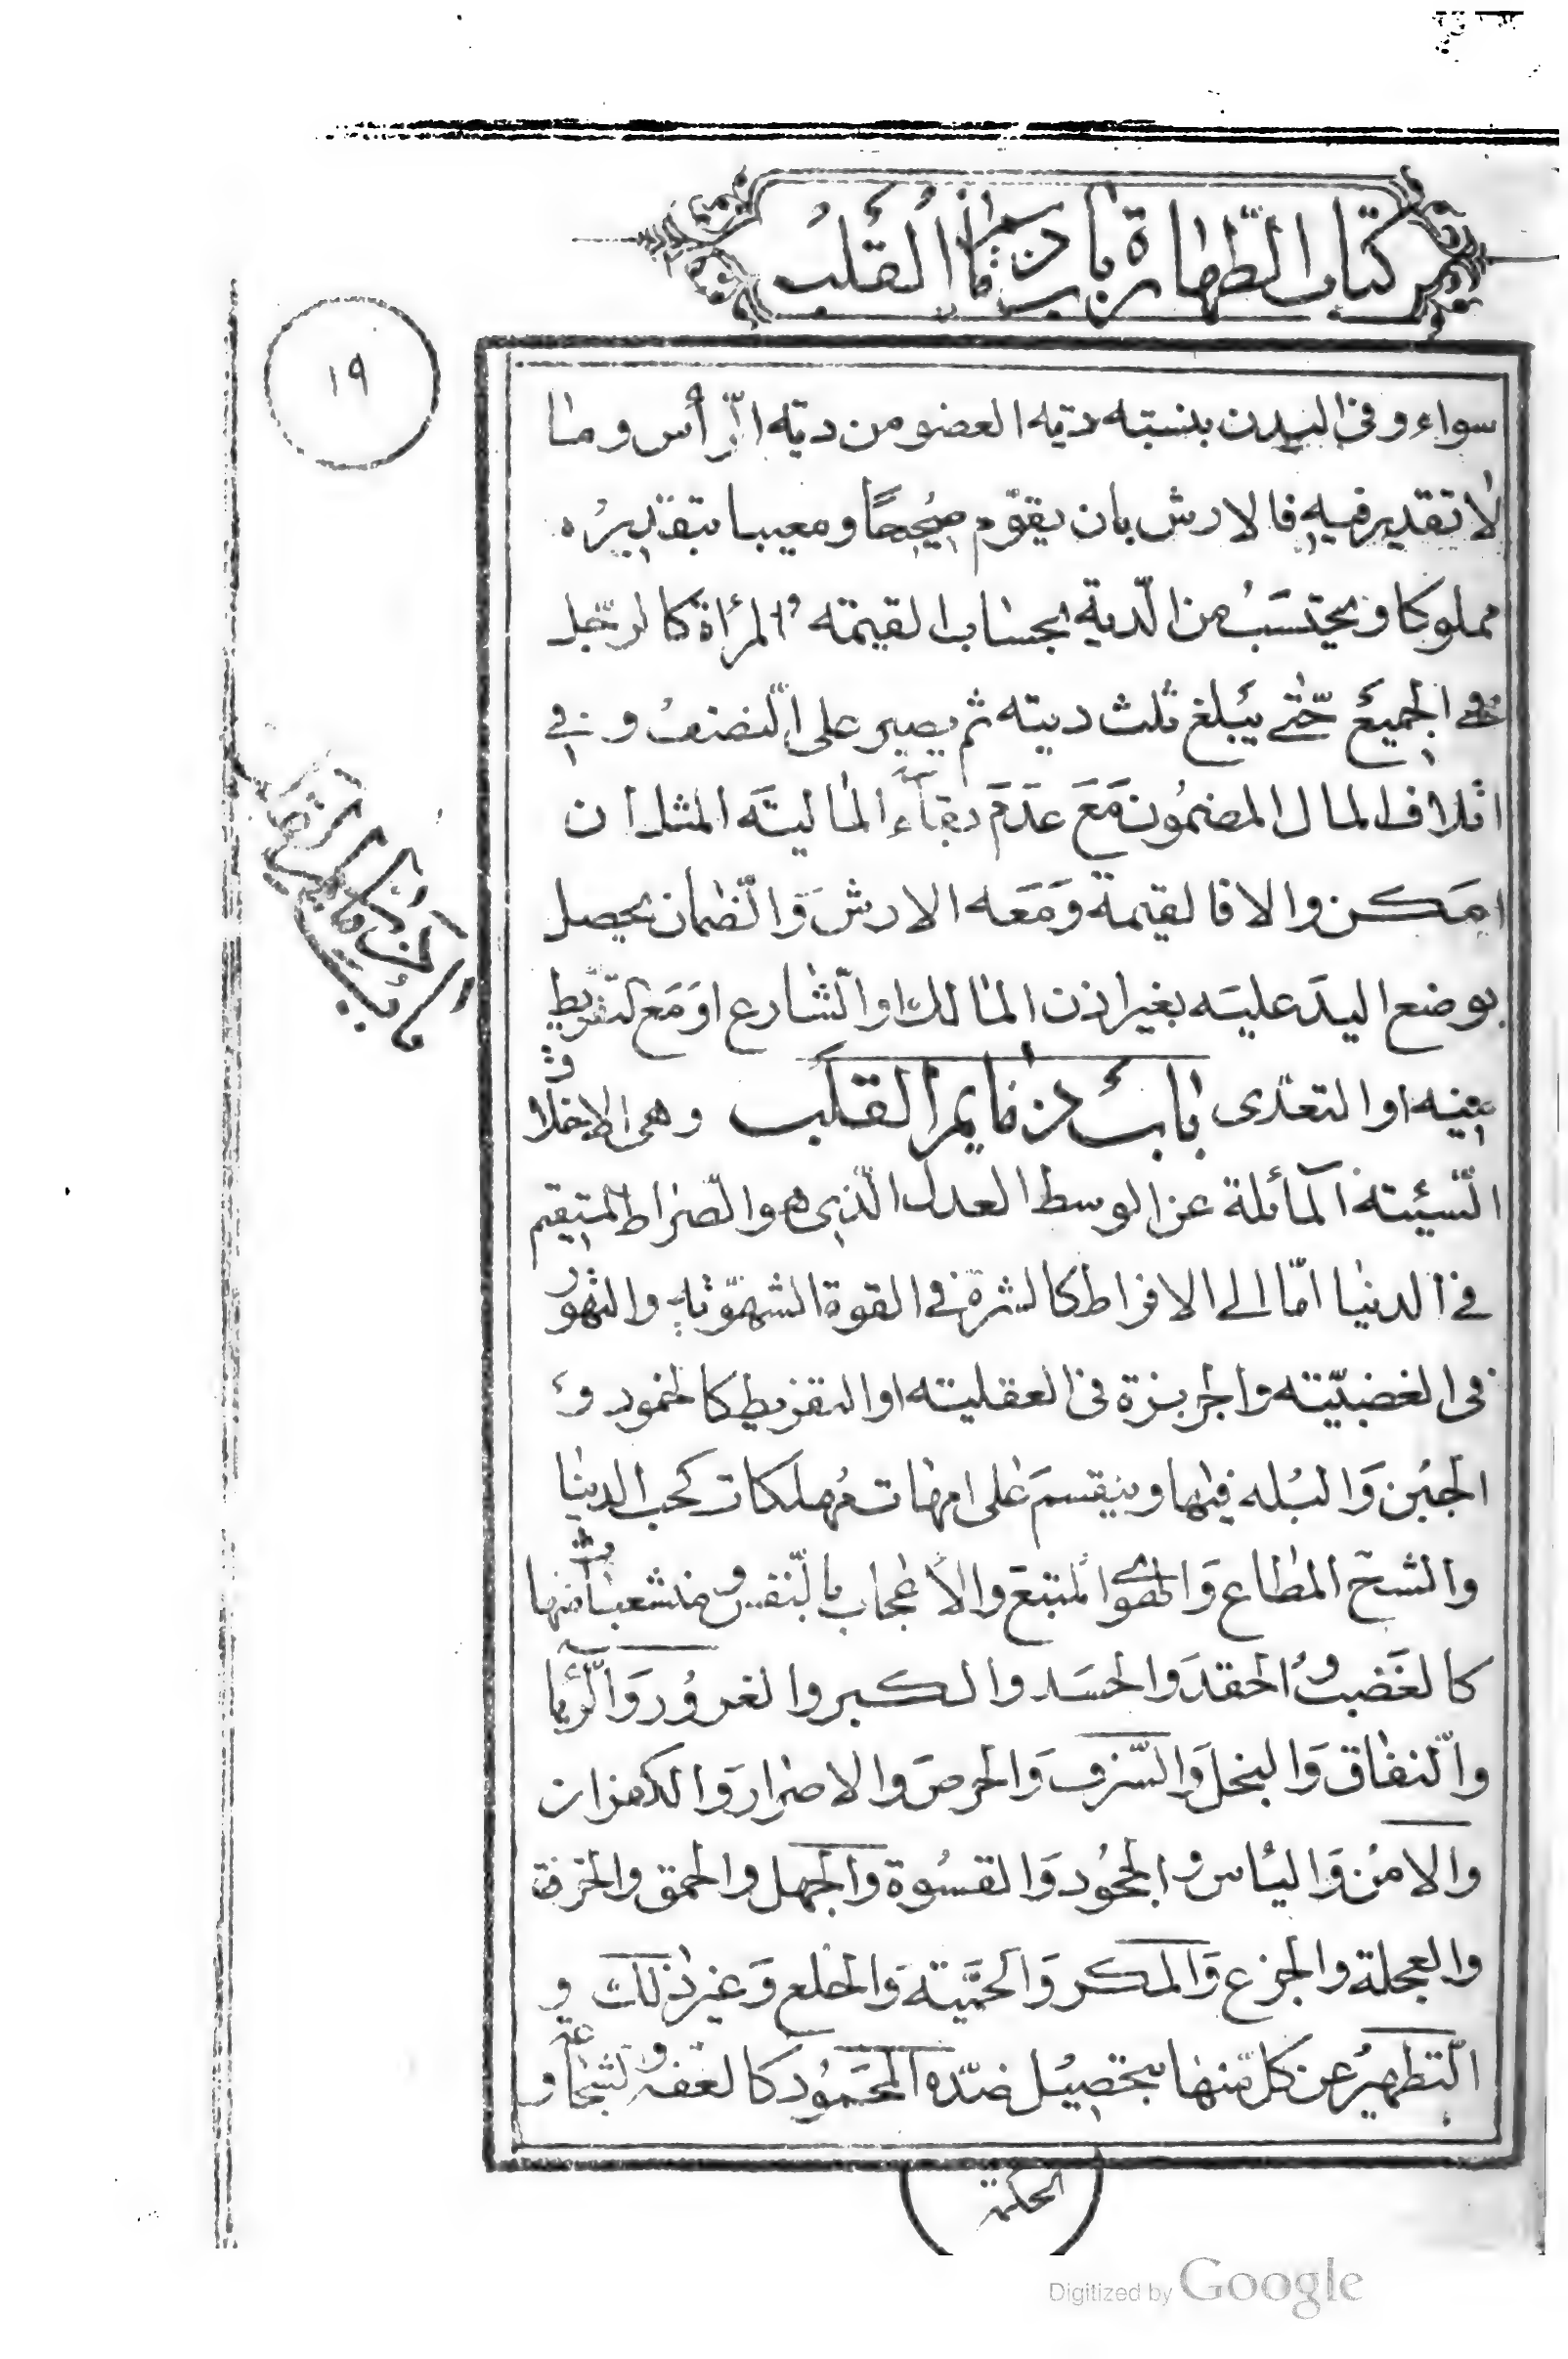 كتاب الطهارة باب ذمائم القلب
١٩
سواء وفى البدن بنسبته ديه العضو من ديته الرّأس وما
لا تقدير فيه فالارش بان يقوّم صحيحًا ومعيبا بتقديره
مملوكا ويحتسب من الدّية بحساب القيمته والمرأة كالرّجل
فى الجميع حتّى يبلغ ثلث ديته ثم يصير على النّصف و فى
اتلاف المال المضمون مَعَ عدَمَ بقاء الماليتَه المثل ان
امكن والا فالقيمة وَمَعَه الارش وَالضّمان يحصل
بوضع اليدَ عليَه بغير اذن المالك او الشّارع او مَع التفريط
فيه او التعدّى باب ذمايم القلب وهى الاخلاق
السّيئته المائلة عن الوسط العدل الّذى هو الصّراط المستقيم
فى الدنيا امّا الى الافراط كالشره فى القوة الشهوّيه والتهور
فى الغضبيّته والجربزة فى العقليته او التفريط كالخمود و
الجبن وَالبله فيها وينقسم على امهات مُهلكات كحب الدنيا
والشحّ المطاع وَالهوى المتبع والاعجاب بالنّفس و منشعبات منها
كالغضب وُالحقدَ والحسَد والكبر والغرُور وَالرّيا
والنّفاق وَالبخل وَالسّرف وَالحرص وَالاصرار وَالكفران
والامن وَالياس والجحُود وَالقسوة وَالجهل والحمق والخرق
والعجلة والجزع وَالمكر وَالحميّته وَالهلع وَغير ذلك و
التّطهير عن كل منها بتحصيل ضدّه المحمُود كالعفه و الشجاعة و
الحكمة
باب ذمائم القلب
Digitized by Google